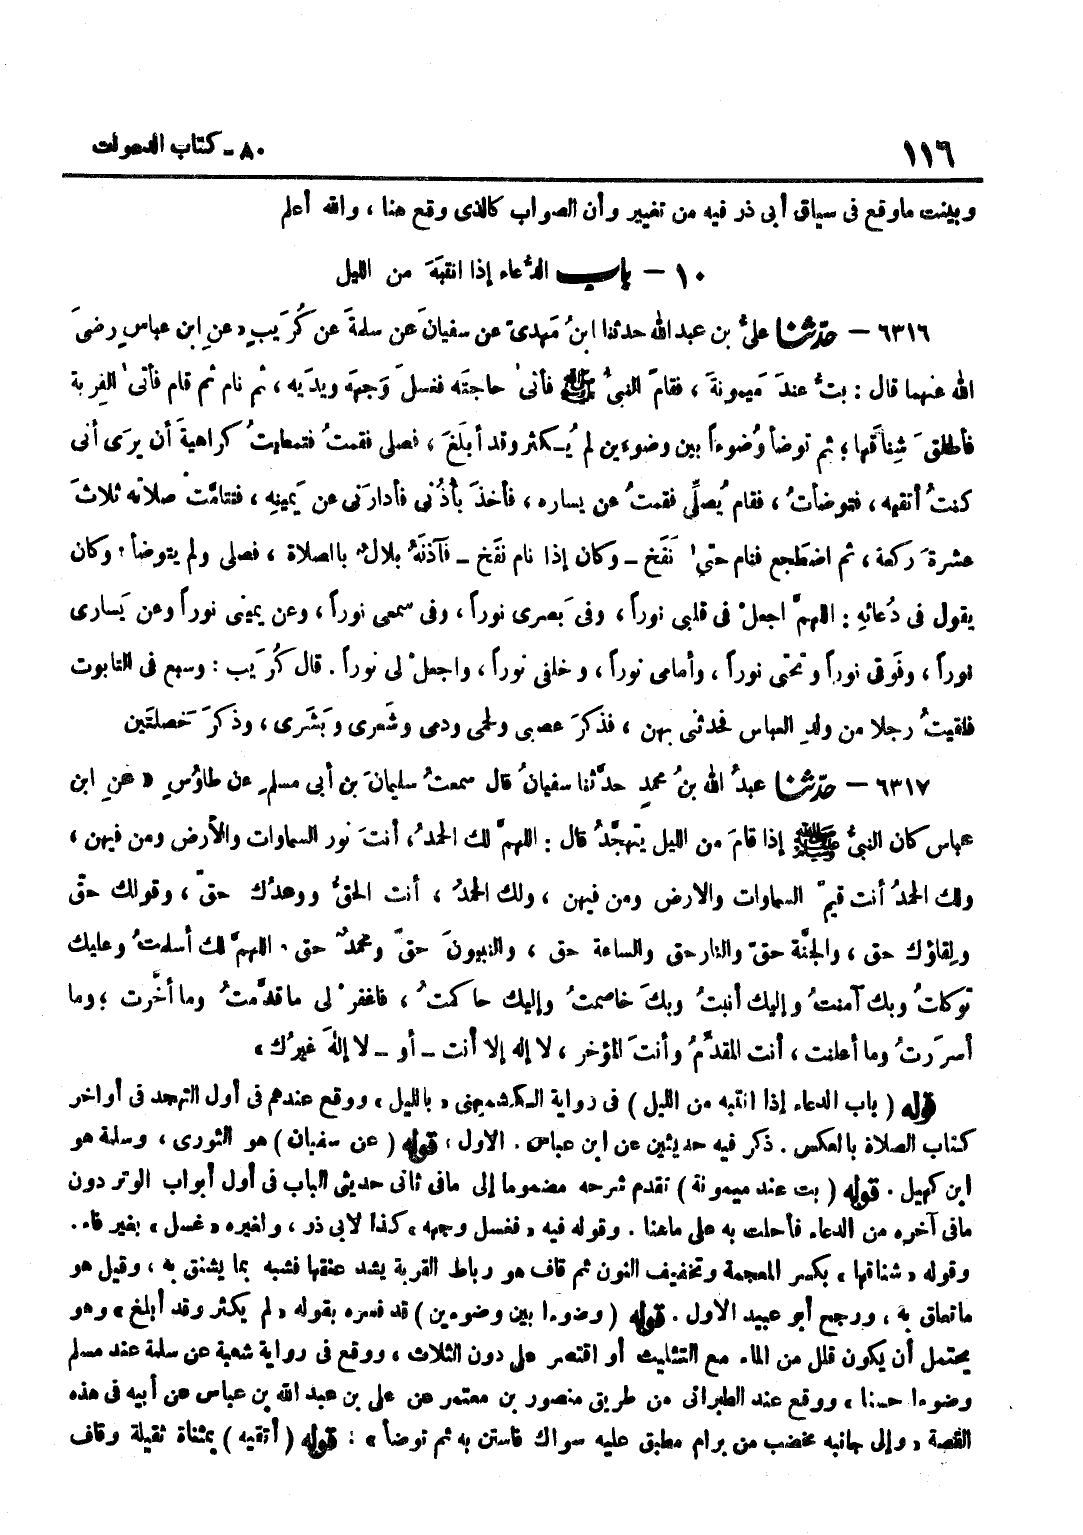 ١١٦
٨٠ - كتاب الدعوات
وبينت ماوقع فى سياق أبى ذر فيه من تغيير وأن الصواب كالذى وقع هنا ، والله أعلم
١٠ - باب الدُّعاء إذا انتبَهَ من الليل
٦٣١٦ - حدّثنا علىُّ بن عبد الله حدثنا ابنُ مَهدىّ عن سفيانَ عن سلمةَ عن كُرَيبٍ «عنِ ابن عباسٍ رضىَ
الله عنهما قال : بتُّ عندَ مَيمونةَ ، فقامَ النبىُّ ﷺ فأتىٰ حاجتَه فغسلَ وَجهَه ويدَيه ، ثم نام ثم قام فأتىٰ القِربة
فأطلقَ شِناقَها ؛ ثم توضأ وُضوءاً بين وضوءَين لم يُـكثر وقد أبلَغَ ، فصلى فقمتُ فتمطيتُ كراهيةَ أن يرَى أنى
كنتُ أتقيه ، فتوضأتُ ، فقام يُصلِّى فقمتُ عن يساره ، فأخذَ بأُذُنى فأدارَنى عن يَمينِه ، فتتامَّتْ صلاتُه ثلاثَ
عشرةَ ركعة ، ثم اضطَجع فنام حتىٰ نَفَخ ـ وكان إذا نام نفَخ ـ فآذنَهُ بلالٌ بالصلاة ، فصلى ولم يتوضأ ؛ وكان
يقول فى دُعائهِ : اللهمَّ اجعلْ فى قلبى نوراً ، وفى بَصرى نوراً ، وفى سمعى نوراً ، وعن يمينى نوراً وعن يَسارى
نوراً ، وفَوقى نوراً وتحتى نوراً ، وأمامى نوراً ، وخلفى نوراً ، واجعلْ لى نوراً . قال كُرَيب : وسبع فى التابوت
فلقيتُ رجلا من ولدِ العباس فحدثنى بهن ، فذكرَ عصبى ولحمى ودمى وشَعرى وبَشَرى ، وذكرَ خَصلتَين
٦٣١٧ - حدّثنا عبدُ الله بنُ محمدٍ حدَّثنا سفيانُ قال سمعتُ سليمانَ بن أبى مسلمٍ عن طاوُسٍ «عنِ ابن
عباس كان النبىُّ ﷺ إذا قامَ من الليل يتهجَّدُ قال : اللهمَّ لك الحمدُ ، أنتَ نور السماوات والأرض ومن فيهن ،
ولك الحمدُ أنت قيمُ السماوات والارض ومن فيهن ، ولك الحمدُ ، أنت الحقُّ ووعدُك حقّ ، وقولك حقّ
ولِقاؤك حق ، والجنَّة حقّ والنار حق والساعة حق ، والنبيونَ حقّ ومحمدٌ حق . اللهمَّ لك أسلمتُ وعليك
توكلتُ وبك آمنتُ وإليك أنبتُ وبكَ خاصمتُ وإليك حاكمتُ ، فاغفرْ لى ما قدَّمتُ وما أخَّرت ؛ وما
أسرَرتُ وما أعلنت ، أنت المقدَّمُ وأنتَ المؤخر ، لا إله إلا أنت ـ أو ـ لا إلهَ غيرُك»
قوله ( باب الدعاء إذا انتبه من الليل ) فى رواية الـكشميهنى « بالليل » ووقع عندهم فى أول التهجد فى أواخر
كتاب الصلاة بالعكس . ذكر فيه حديثين عن ابن عباس . الاول ، قوله ( عن سفيان ) هو الثورى ، وسلمة هو
ابن كهيل . قوله ( بت عند ميمونة ) تقدم شرحه مضموما إلى مافى ثانى حديثى الباب فى أول أبواب الوتر دون
مافى آخره من الدعاء فأحلت به على ماهنا . وقوله فيه « فغسل وجهه » كذا لابى ذر ، ولغيره « غسل » بغير فاء .
وقوله « شناقها » بكسر المعجمة وتخفيف النون ثم قاف هو رباط القربة يشد عنقها فشبه بما يشنق به ، وقيل هو
ماتعلق به ، ورجح أبو عبيد الاول . قوله ( وضوءا بين وضوءين ) قد فسره بقوله « لم يكثر وقد أبلغ » وهو
يحتمل أن يكون قلل من الماء مع التثليث أو اقتصر على دون الثلاث ، ووقع فى رواية شعبة عن سلمة عند مسلم
وضوءا حسنا ، ووقع عند الطبرانى من طريق منصور بن معتمر عن على بن عبد الله بن عباس عن أبيه فى هذه
القصة « وإلى جانبه مخضب من برام مطبق عليه سواك فاستن به ثم توضأ » : قوله ( أتقيه ) بمثناة ثقيلة وقاف